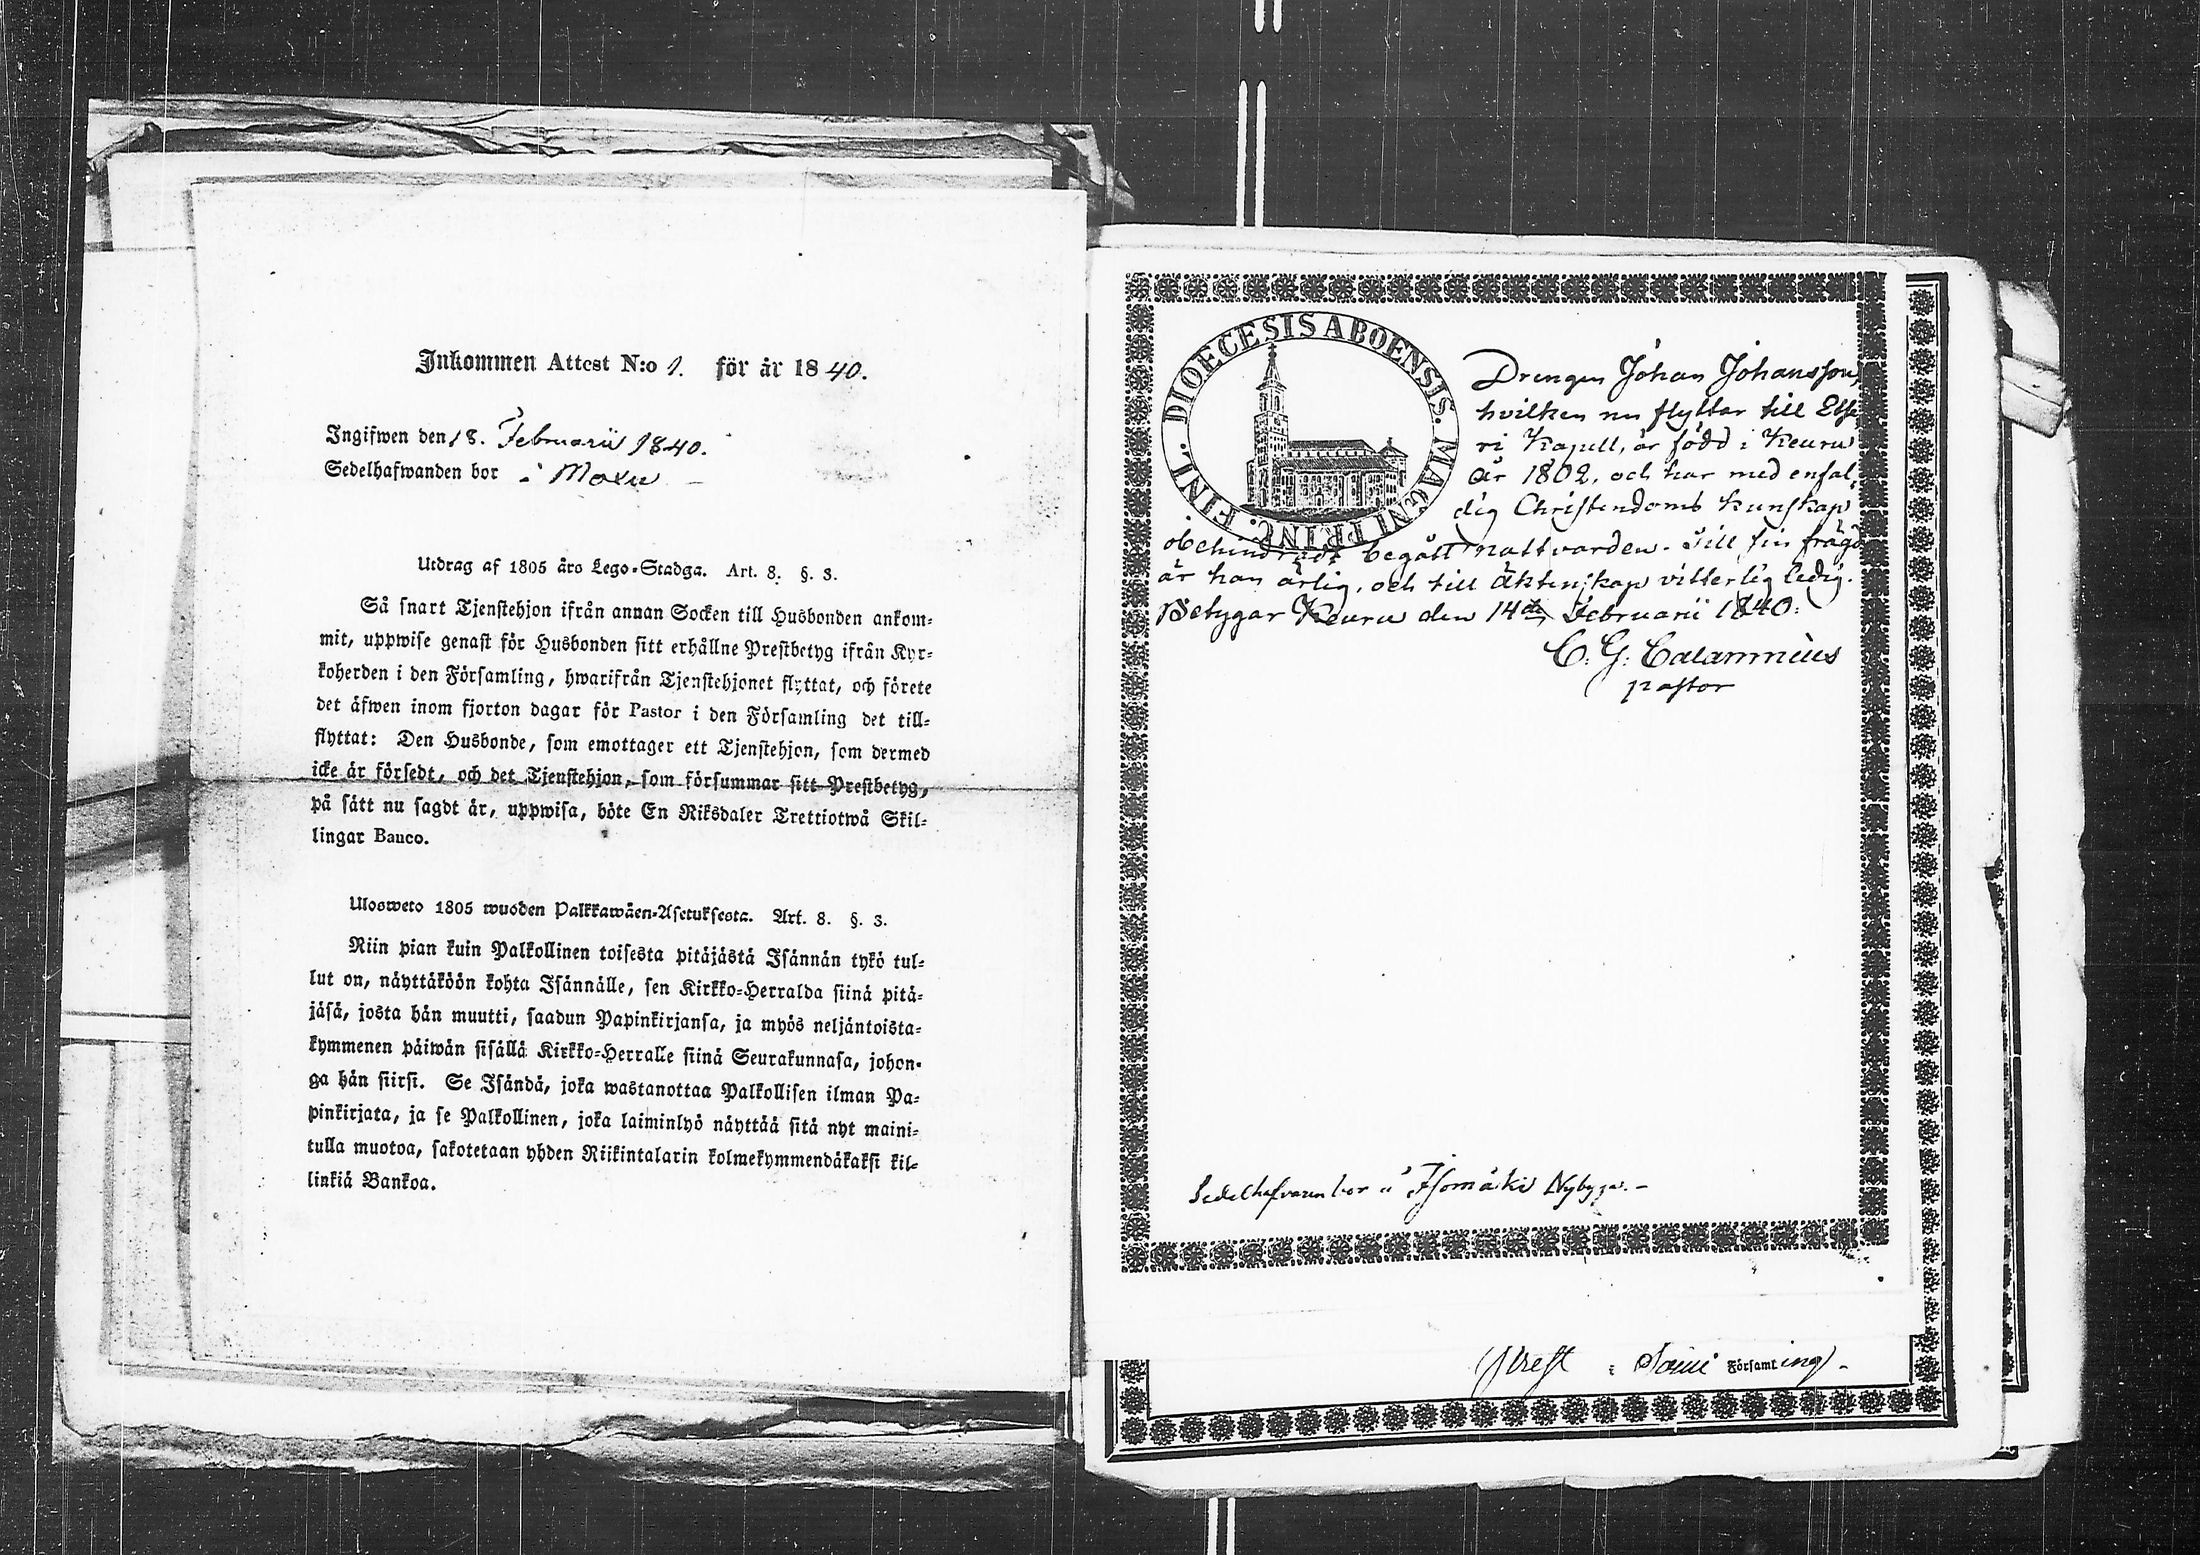 Inkommen Attest N:o 1. för år 1840.
Ingifwen den 18. Februarii 1840.
Sedelhafwanden bor i Moxu
Utdrag af 1805 års Lego-Stadga. Art. 8. §. 3.
Så snart Tjenstehjon ifrån annan Socken till Husbonden ankom-
mit, uppwise genast för Husbonden sitt erhållne Prestbetyg ifrån Kyr-
koherden i den Församling, hwarifrån Tjenstehjonet flyttat, och förete
det äfwen inom fjorton dagar för Pastor i den Församling det till-
flyttat: Den Husbonde, som emottager ett Tjenstehjon, som dermed
icke är försedt, och det Tjenstehjon, som försummar sitt Prestbetyg,
på sätt nu sagdt är, uppwisa, böte En Riksdaler Trettiotwå Skil-
lingar Banco.
Ulosweto 1805 wuoden Palkkawäen-Asetuksesta. Art. 8. §. 3.
Niin pian kuin Palkollinen toisesta pitäjästä Isännän tykö tul-
lut on, näyttäköön kohta Isännälle, sen Kirkko-Herralda siinä pitä-
jäsä, josta hän muutti, saadun Papinkirjansa, ja myös neljäntoista-
kymmenen päiwän sisällä Kirkko-Herralle siinä Seurakunnasa, johon-
ga hän siirsi. Se Isändä, joka wastanottaa Palkollisen ilman Pa-
pinkirjata, ja se Palkollinen, joka laiminlyö näyttää sitä nyt maini-
tulla muotoa, sakotetaan yhden Riikintalarin kolmekymmendäkaksi kil-
linkiä Bankoa.
DIOECESIS ABOENSIS. MAGNI PRINC. FINL.
Drengen Johan Johansson,
hvilken nu flyttar till Etse
ri Kapell, är född i Keuru
år 1802, och har med enfal,
dig Christendoms kunskap
obehindradt begått nattvarden. Till sin frägd
är han ärlig, och till äktenskap vitterlig ledig.
Betygar Keuru den 14de Februarii 1840.
C. G. Calamnius
pastor
Sedelhafvaren bor i Isomäki Nybyge.
Församling